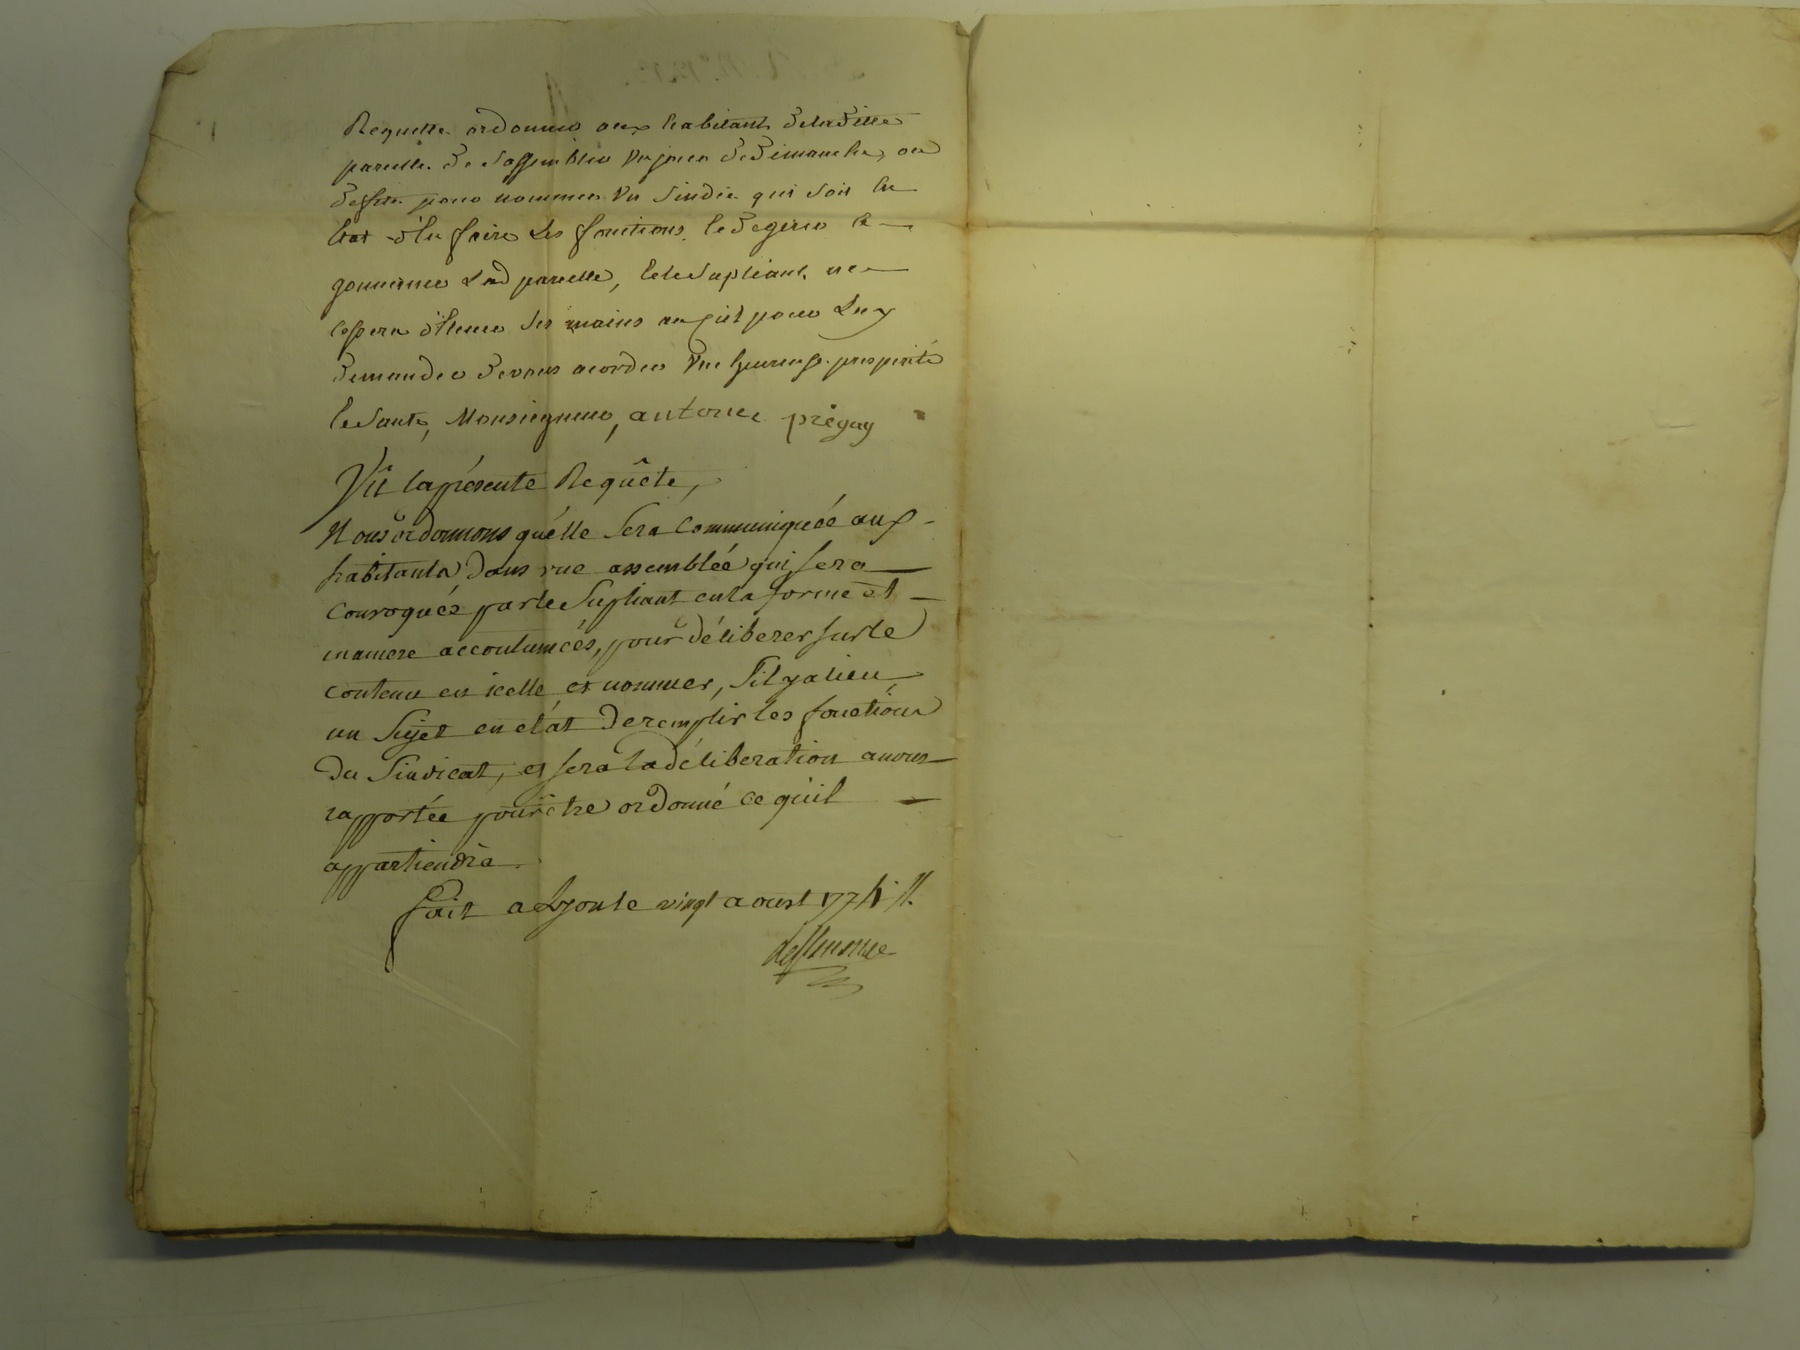 Requette ordonner aux habitants de la ditte
parcelle de s'assembler un jour de dimanche, ou
de feste pour nommer un sindic qui soit en
etat d'en faire les fonctions, le degerer le
gouverner lad parcelle, et le supliant ne
cessera d'lever ses mains au ciel pour luy
demander de vous acorder une heureuse prosperité
le santé, Monseigneur, antoine prégay
Vû la présente Requête,
Nous ordonnons qu'elle sera communiquée aux
habitants dans une assemblée qui sera
convoquée par le supliant en la forme et
maniere accoutumées, pour délibérer sur le
contenu en icelle et nommer, s'il y a lieu,
un sujet en etât de remplir les fonctions
du sindicat, et sera la déliberation a nous
rapportée pour être ordonné ce qu'il
appartiendra.
fait a Lyon le vingt aoust 1774 /.